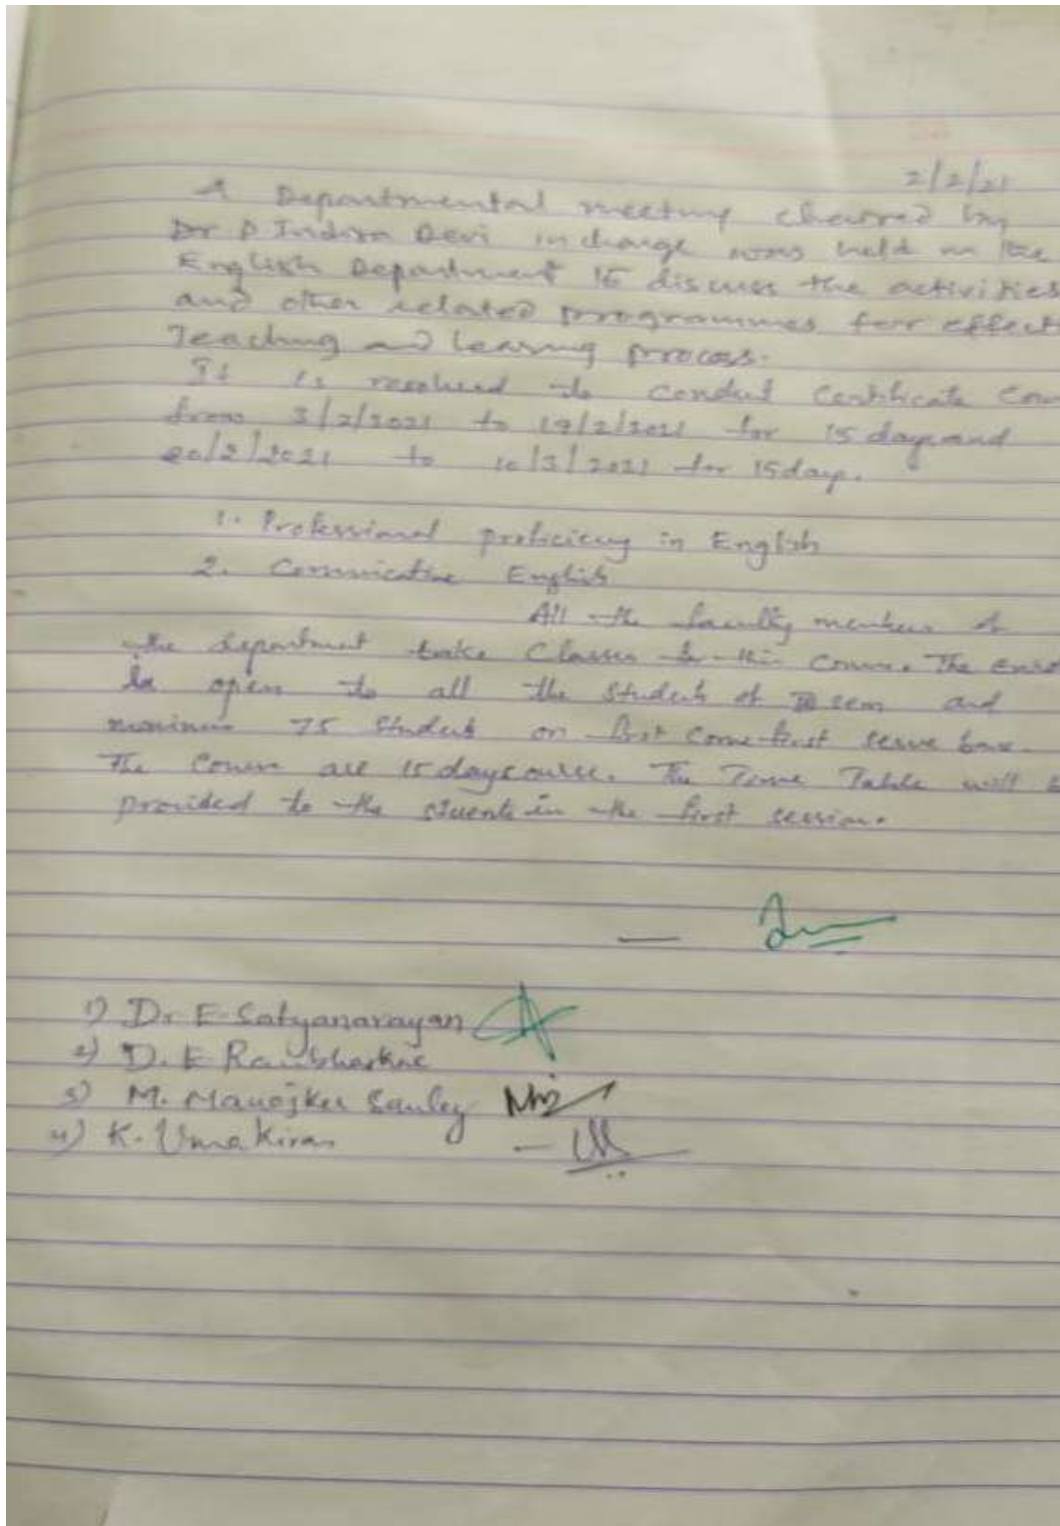 2/2/21
A Departmental meeting chaired by
Dr P Indira Devi incharge was held in the
English Department to discuss the activities
and other related programmes for effect
Teaching and learning process.
It is resolved to conduct Certificate Cou
from 3/2/2021 to 19/2/2021 for 15 days and
20/2/2021 to 10/3/2021 for 15 days.
1. Professional proficiency in English
2. Communicative English
All the faculty members of
the department take Classes for this Course. The
is open to all the Students of sem and
75 Student on first come first serve base.
The Course are 15 days course. The Time Table will b
provided to the stuents in the first session.
1) Dr E. Satyanarayan
2) D. E Ravibhaskar
3) M. Manojker
4) K. Uma Kiran